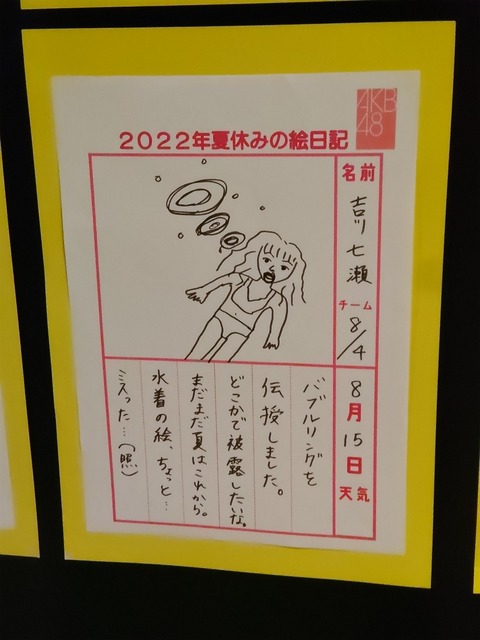 AKB
48
2022年夏休みの絵日記
名前
吉川七瀬
チーム
8/4
8月15日
天気
バブルリングを
伝授しました。
どこかで被露したいな。
まだまだ夏はこれから。
水着の絵、ちょっと…
ミスった…(照)